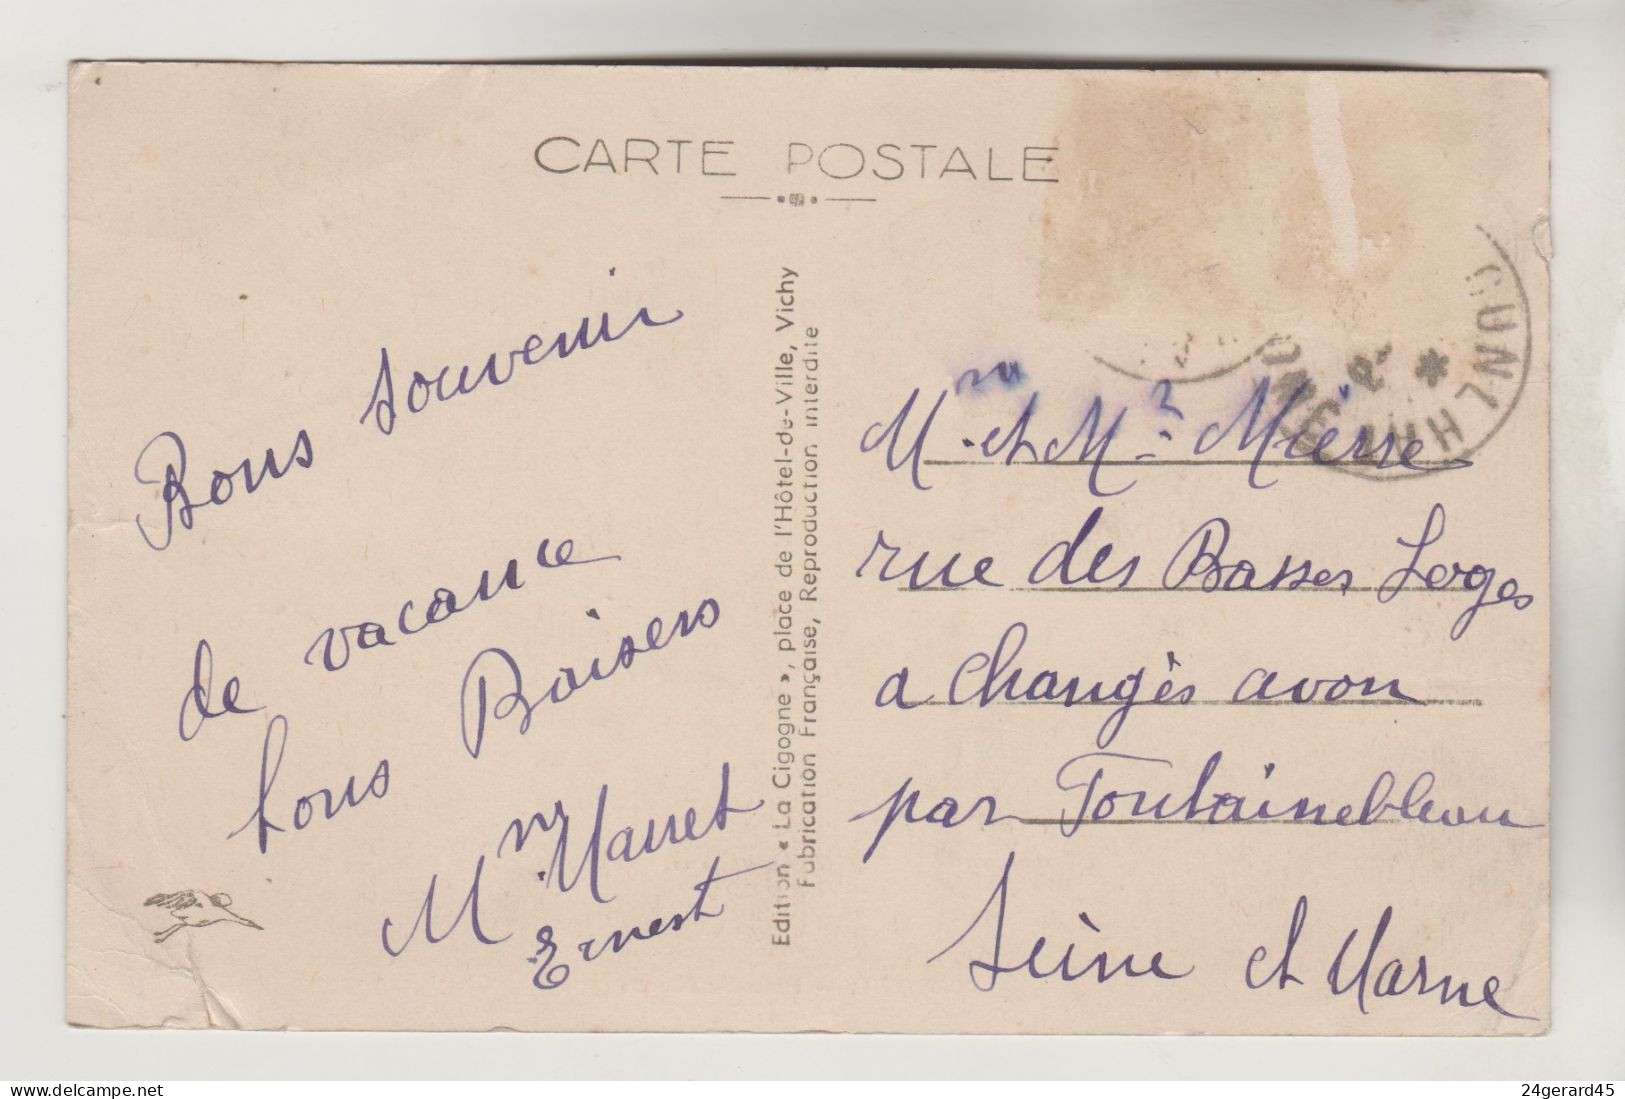 CARTE POSTALE
Bons souvenir
de vacance
bons Baisers
Mr Marret
Ernest
Edition « La Cigogne », place de l'Hôtel-de-Ville, Vichy
Fabrication Française, Reproduction interdite
Mr et Me Mierre
rue des Basses Loges
a Changès avon
par Fontainebleau
Seine et Marne
delcampe.net
24gerard45